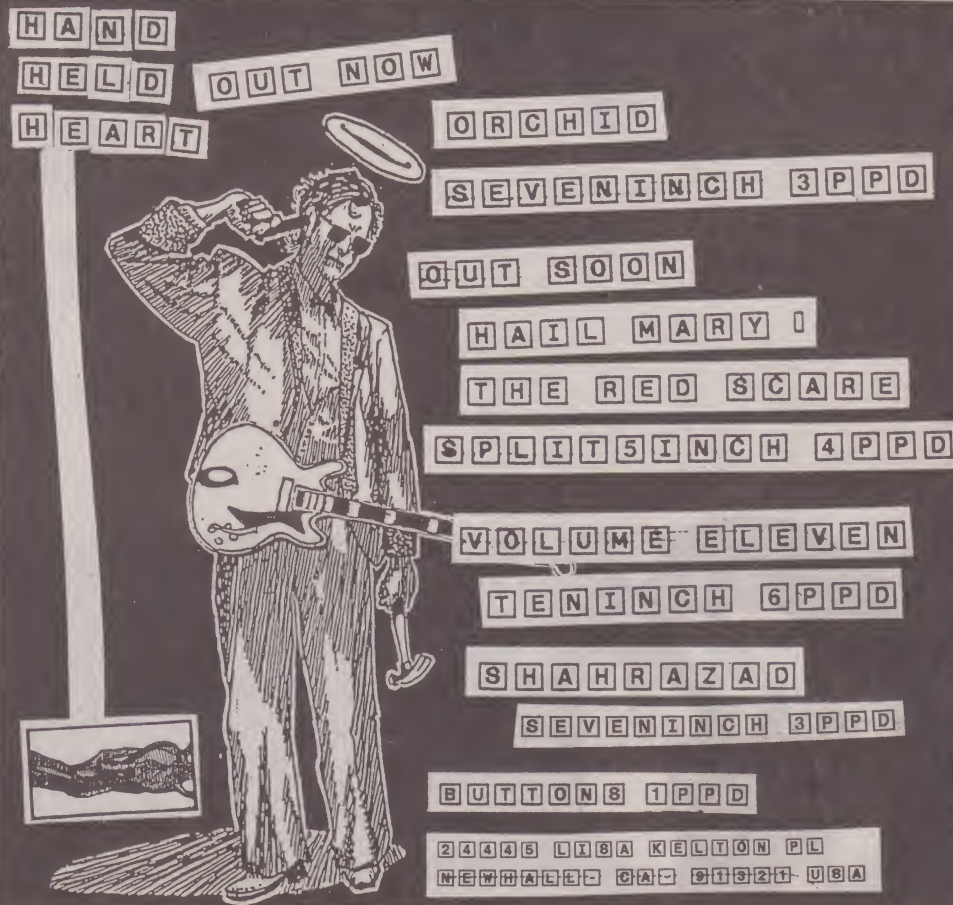 HAND
HELD
HEART
OUT NOW
ORCHID
SEVENINCH 3PPD
OUT SOON
HAIL MARY
THE RED SCARE
SPLIT5INCH 4PPD
VOLUME ELEVEN
TENINCH 6PPD
SHAHRAZAD
SEVENINCH 3PPD
BUTTONS 1PPD
24445 LISA KELTON PL
NEWHALL- CA- 91321 USA